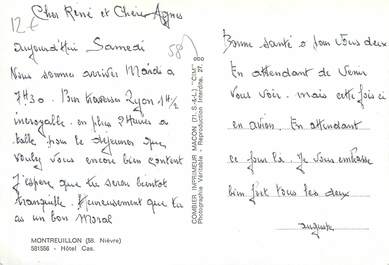 12€
Cher René et Chère Agnes
aujourd'hui Samedi
58
Nous sommes arrivés Mardi a
7H30. Bien traverser Lyon 1H1/2
incroyable. en plus 2 Heures a
table pour le déjeuner que
vouly vous encore bien content
J'espère que tu seras bientot
tranquille. Heureusement que tu
as un bon Moral
MONTREUILLON (58. Nièvre)
581556 - Hôtel Cas.
COMBIER IMPRIMEUR MACON (71. S.-&-L.) "CIM"
Photographie Véritable - Reproduction Interdite.
Bonne santé a vous deux
En attendant de Venir
Vous Voir. mais cette fois ci
en avion. En attendant
ce jour là. Je vous embrasse
bien fort tous les deux
auguste